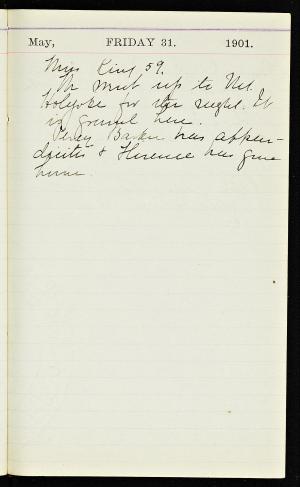 May, FRIDAY 31. 1901.
Miss King 59.
We went up to Mt.
Holyoke for the night. It
is grand here.
Percy Barker has appen-
dicitis & Florence has gone
home.